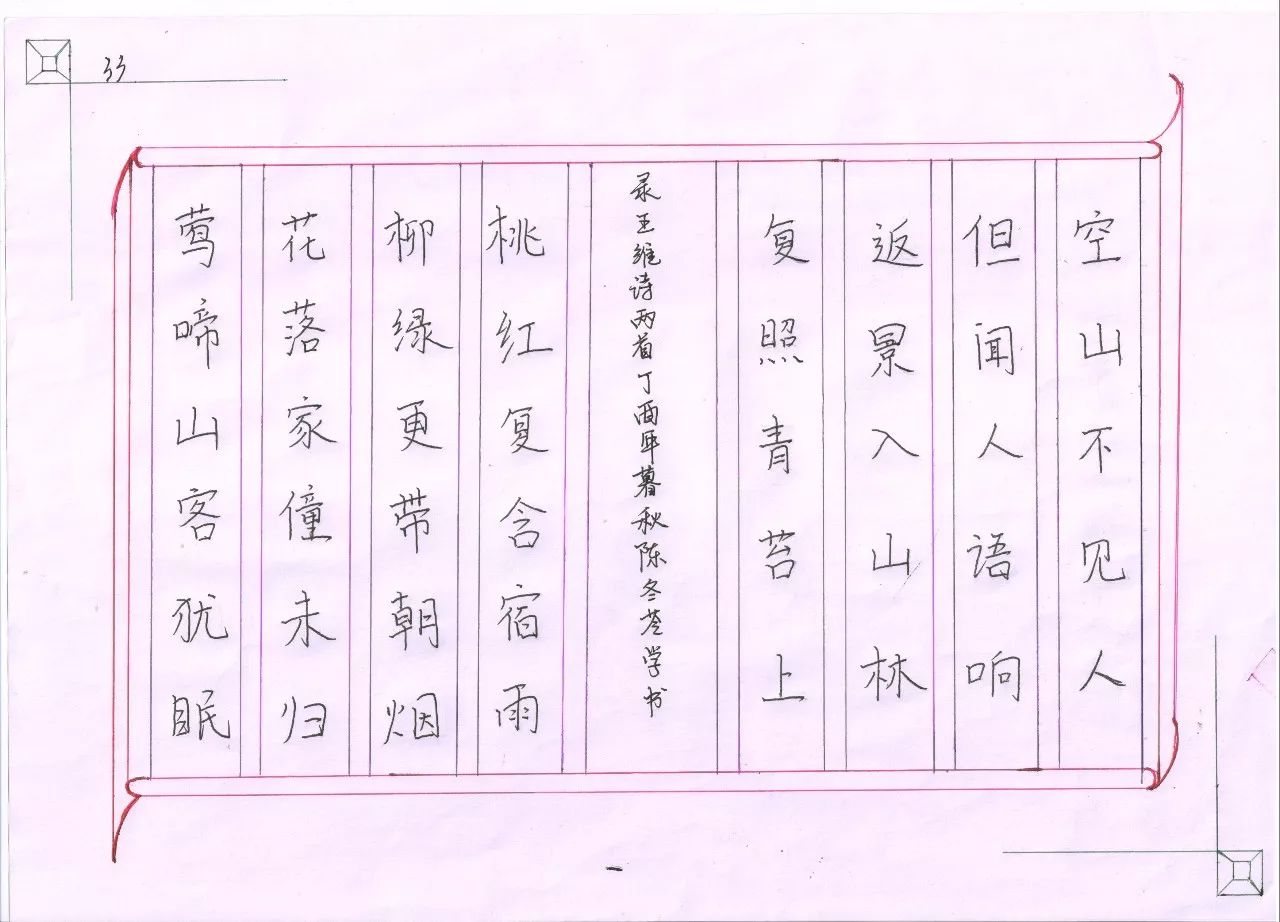 33
空山不见人
但闻人语响
返景入山林
复照青苔上
录王维诗两首丁酉年暮秋陈冬苍学书
桃红复含宿雨
柳绿更带朝烟
花落家僮未归
莺啼山客犹眠